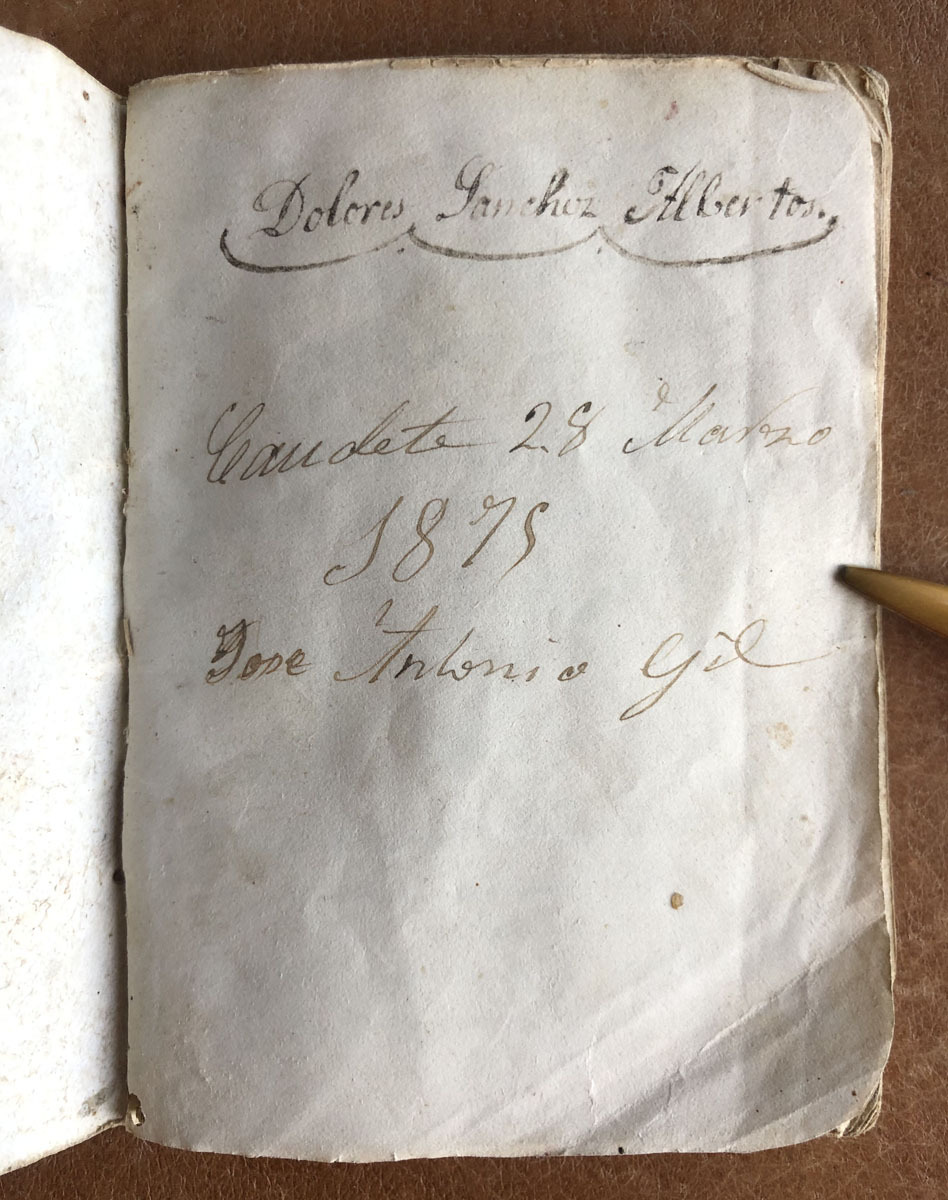 Dolores Sanchez Albertos.
Caudete 28 Marzo
1875
Jose Antonio Gil